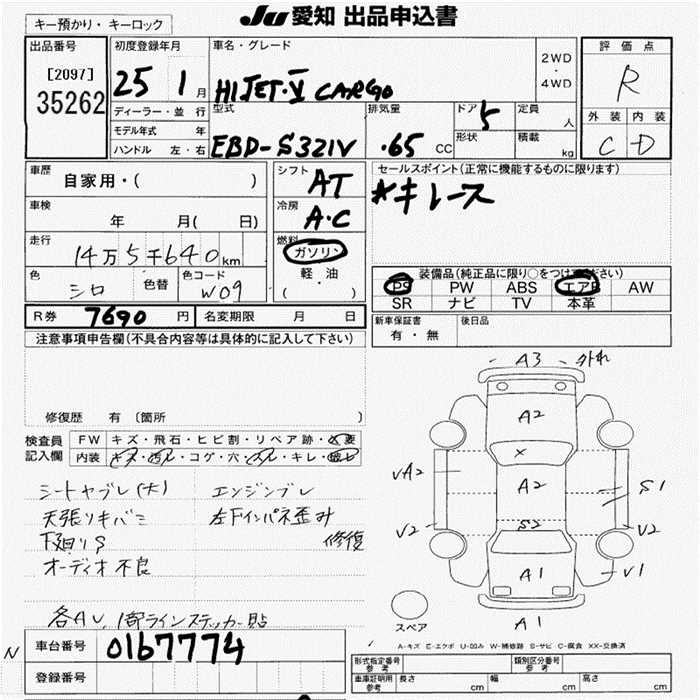 キー預かり・キーロック
JU 愛知 出品申込書
出品番号
[2097]
35262
初度登録年月
25 1 月
ディーラー・並行
モデル年式 年
ハンドル 左・右
車名・グレード
HIJET・V CARGO
2WD
・
4WD
型式
EBD-S321V
排気量
.65 CC
ドア
5
形状
定員
人
積載
kg
評価点
R
外装 内装
C D
車歴
自家用・( )
車検
年 月( 日)
走行
14万5千640km
色
シロ
色替
色コード
W09
シフト
AT
冷房
A・C
燃料
ガソリン
軽・油
( )
セールスポイント(正常に機能するものに限ります)
*キレース
装備品(純正品に限り○をつけてください)
PS PW ABS エアB AW
SR ナビ TV 本革
R券 7690 円
名変期限 月 日
新車保証書
有・無
後日品
注意事項申告欄(不具合内容等は具体的に記入して下さい)
修復歴 有 〔箇所 〕
検査員
記入欄
FW キズ・飛石・ヒビ割・リペア跡・X要
内装 キズ・汚レ・コゲ・穴・スレ・キレ・破レ
シートヤブレ(大)
天張リキバミ
下廻りS
オーディオ不良
エンジンブレ
左下インパネ歪み
修復
各AU、1部ラインステッカー貼
A3 外れ
A2
X
VA2
A2
S1
S2
V2
V2
A1
V1
A1
スペア
A-キズ E-エクボ U-凹み W-補修跡 S-サビ C-腐食 XX-交換済
N
車台番号
0167774
登録番号
形式指定番号
参考
類別区分番号
参考
車庫証明用
参考
長さ cm
幅 cm
高さ cm